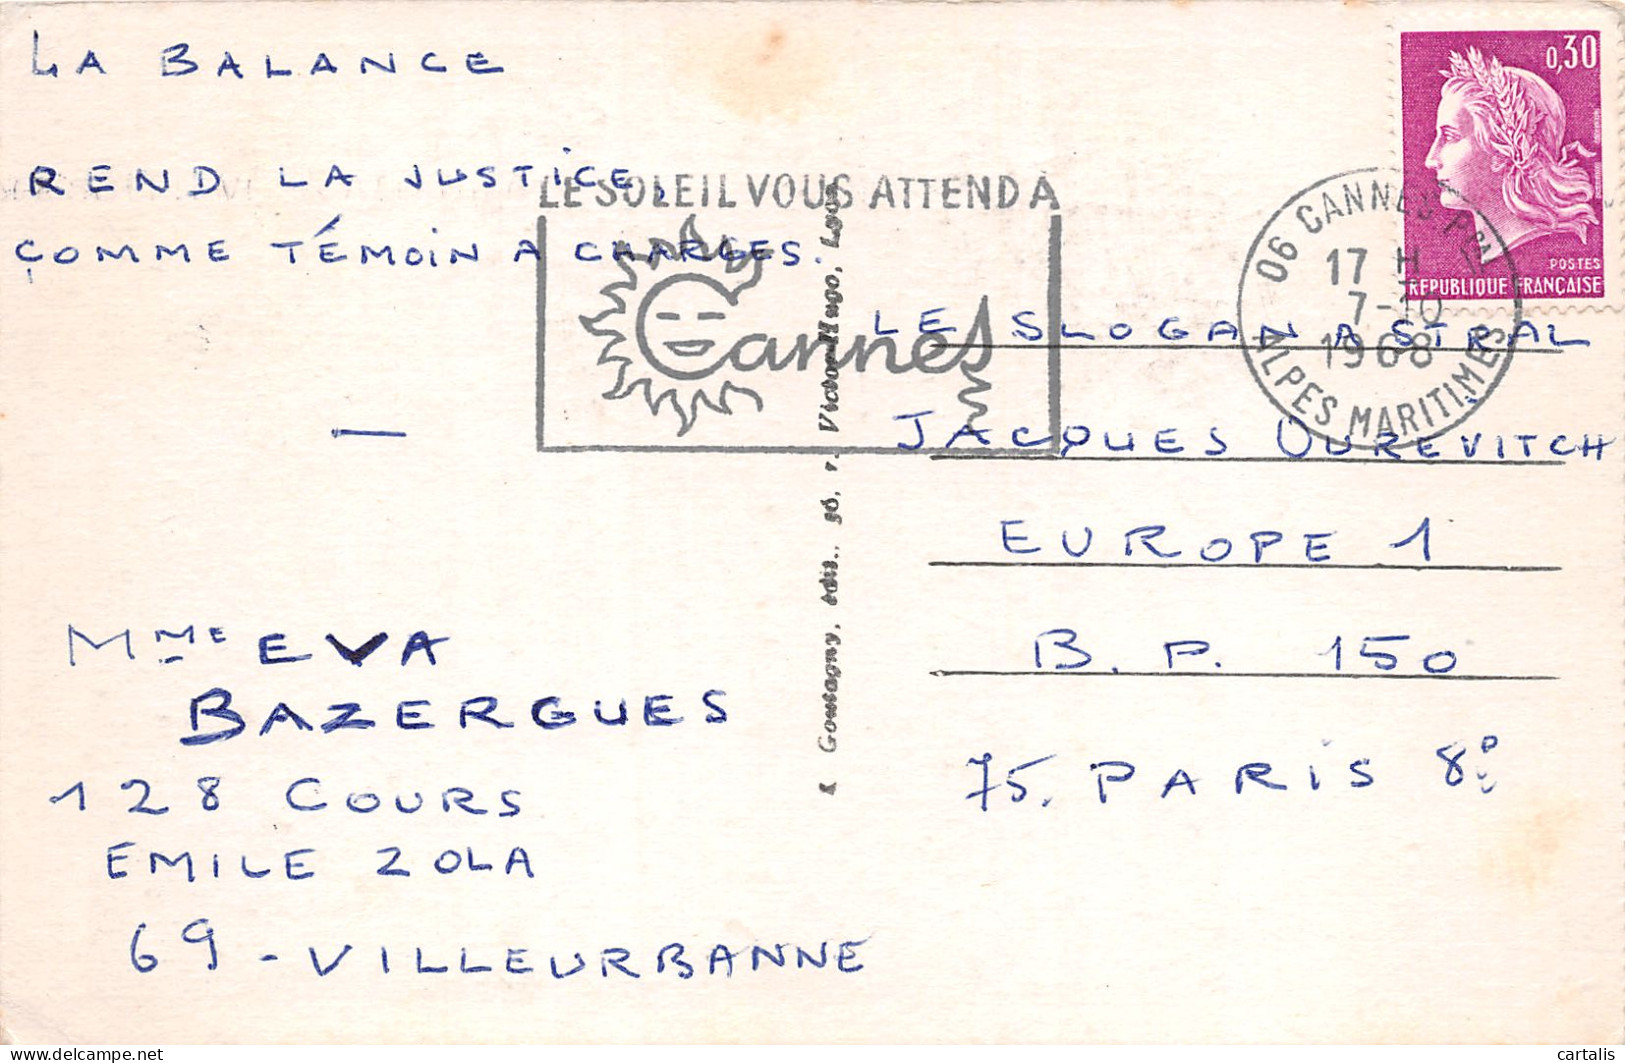 LA BALANCE
REND LA JUSTICE,
COMME TÉMOIN A CHARGES.
—
Mme EVA
BAZERGUES
128 COURS
EMILE ZOLA
69 - VILLEURBANNE
LE SOLEIL VOUS ATTEND A
Cannes
Goutagny, édit., 36, r. Victor-Hugo, Lyon
0,30
POSTES
REPUBLIQUE FRANÇAISE
06 CANNES PPAL
17 H
7-10
1968
ALPES MARITIMES
LE SLOGAN ASTRAL
JACQUES OUREVITCH
EUROPE 1
B.P. 150
75. PARIS 8e
delcampe.net
cartalis